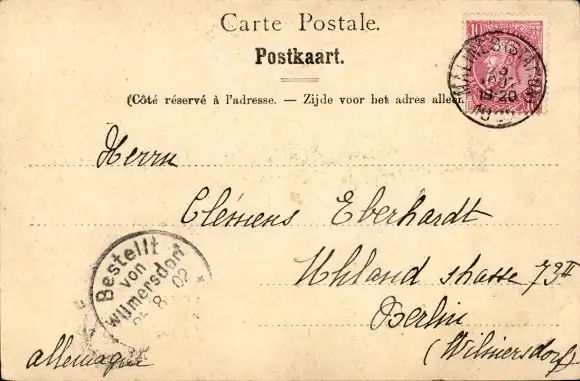 Carte Postale.
Postkaart.
(Côté réservé à l'adresse. — Zijde voor het adres alleen
10
MALINES (STATION)
19-20
Herrn
Clémens Eberhardt
Uhland strasse 73 II
Berlin
(Wilmersdorf)
allemagne
Bestellt
von
Wilmersdorf
8. 02